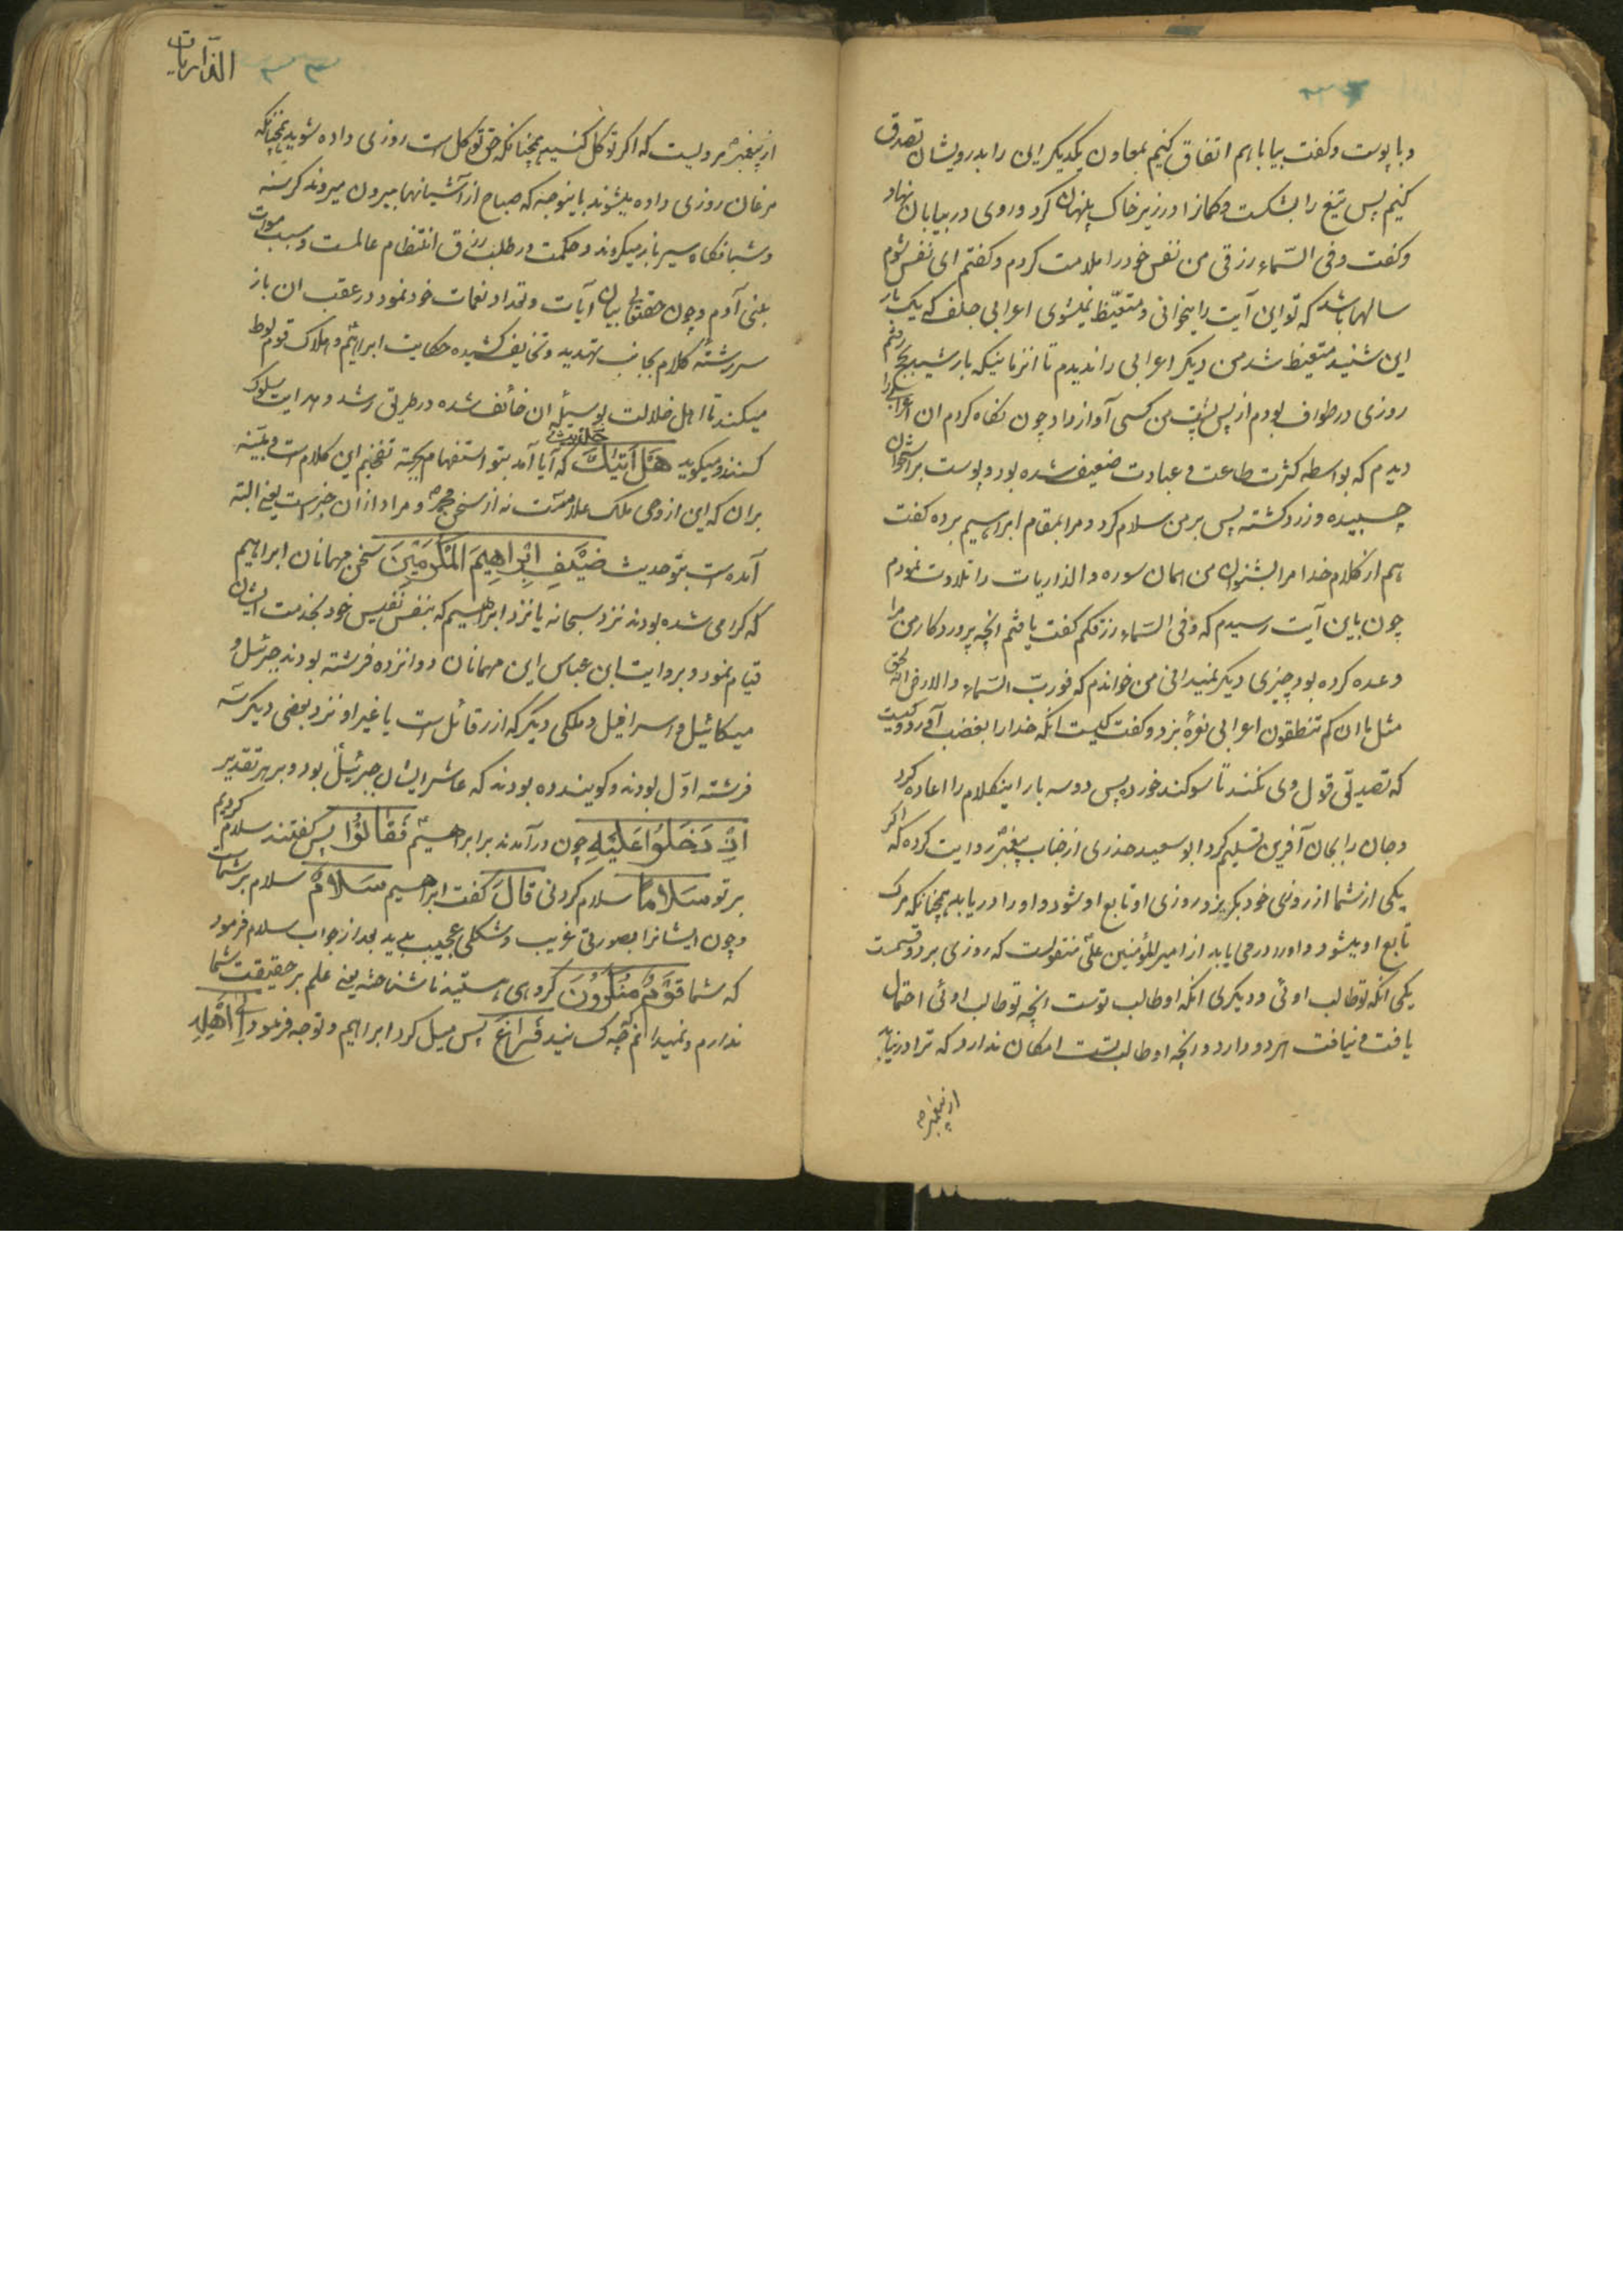 و با پوست و کفت بیا با هم اتفاق کنیم بمعاون یکدیکر این را بدرویشان تصدق
کنیم پس تیغ را بشکست و کمانرا در زیر خاک پنهان کرد و روی در بیابان نهاد
و کفت و فی السّماء رزقی من نفس خود را ملامت کردم و کفتم ای نفس شوم
سالها باشد که تو این آیت را میخوانی و متعیّظ نمیشوی اعرابی جلف که یک بار
این شنید متعیظ شد من دیکر اعرابی را ندیدم تا انزمانیکه با رشید بحج رفتم
روزی در طواف بودم از پس پشت من کسی آواز داد چون نکاه کردم ان اعرابی را
دیدم که بواسطه کثرت طاعت و عبادت ضعیف شده بود و پوست بر استخوان
چسبیده و زرد کشته پس بر من سلام کرد و مرا بمقام ابراهیم برده کفت
هم از کلام خدا مرا بشنوان من همان سوره والذاریات را تلاوت نمودم
چون باین آیت رسیدم که و فی السّماء رزقکم کفت یافتم انچه پروردکار من مرا
وعده کرده بود چیزی دیکر نمیدانی من خواندم که فوربّ السّماء والارض انه لحق
مثل ما ان کم تنطقون اعرابی نعرهٔ بزد و کفت کیست انکه خدا را بغضب آورد و کیست
که تصدیق قول وی نکند تا سوکند خورد پس دو سه بار اینکلام را اعاده کرد
و جان را بجان آفرین تسلیم کرد ابو سعید خدری از جناب پیغمبر روایت کرده که اکر
یکی از شما از روزی خود بکریزد روزی او تابع او شود و او را دریابد همچنانکه مرک
تابع او میشود و او را در می یابد از امیر المؤمنین علی منقولست که روزی بر دو قسمت
یکی انکه تو طالب اوئی و دیکری انکه او طالب توست انچه تو طالب اوئی احتمال
یافت و نیافت هر دو دارد و انچه او طالب تست امکان ندارد که ترا در نیابد
از پیغمبر
الذاریات
از پیغمبر مرویست که اکر توکل کنید همچنانکه حق توکل است روزی داده شوید همچنانکه
مرغان روزی داده میشوند باینوجه که صباح از آشیانها بیرون میروند کرسنه
و شبانکاه سیر باز میکردند و حکمت در طلب رزق انتظام عالمست و سبب موات
بنی آدم و چون حقتعالی بیان آیات و تعداد نعمات خود نمود در عقب ان باز
سر رشته کلام بجانب تهدید و تخایف کشیده حکایت ابراهیم و هلاک قوم لوط
میکند تا اهل ضلالت بوسیله ان خائف شده در طریق رشد و هدایت سلوک
کنند و میکوید هَلْ اَتٰیكَ حَدِیثُ که آیا آمد بتو استفهام بجهة تفخیم این کلام است و تنبیه
بر ان که این از وحی ملک علامست نه از سخن محمد و مراد از ان خبرست یعنی البته
آمده است بتو حدیث ضَیْفِ اِبْرَاهِیمَ الْمُكْرَمِینَ سخن مهمانان ابراهیم
که کرامی شده بودند نزد سبحانه یا نزد ابراهیم که بنفس نفیس خود بخدمت ایشان
قیام نمود و بروایت ابن عباس این مهمانان دوانزده فرشته بودند جبرئیل و
میکائیل و اسرافیل و ملکی دیکر که از رقائل است یا غیر او نزد بعضی دیکر سه
فرشته اوّل بودند و کویند ده بودند که عاشر ایشان جبرئیل بود و بر هر تقدیر
اِذْ دَخَلُوا عَلَیْهِ چون در آمدند بر ابراهیم فَقَالُوا پس کفتند سلام کردیم
بر تو سَلَامًا سلام کردنی قَالَ کفت ابراهیم سَلَامٌ سلام بر شماست
و چون ایشانرا بصورتی غریب و شکلی عجیب بدید بعد از جواب سلام فرمود
که شما قَوْمٌ مُنْكَرُونَ کروهی هستید ناشناخته یعنی علم بر حقیقت شما
ندارم و نمیدانم چه کسانید فَرَاغَ پس میل کرد ابراهیم و توجه فرمود اِلٰی اَهْلِهِ